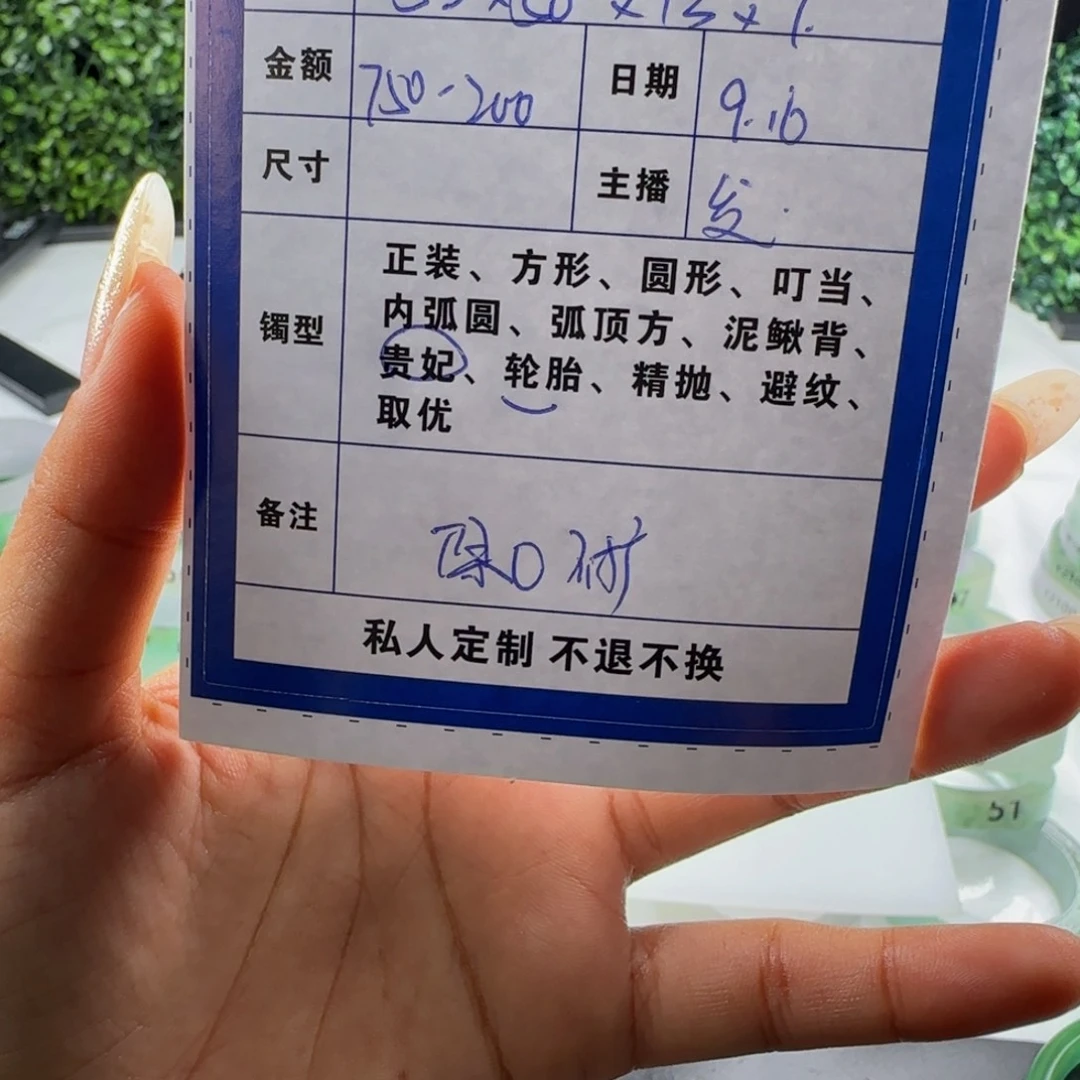 金额 750-200 日期 9.16
尺寸 主播 发
镯型
正装、方形、圆形、叮当、
内弧圆、弧顶方、泥鳅背、
贵妃、轮胎、精抛、避纹、
取优
备注
私人定制 不退不换
51